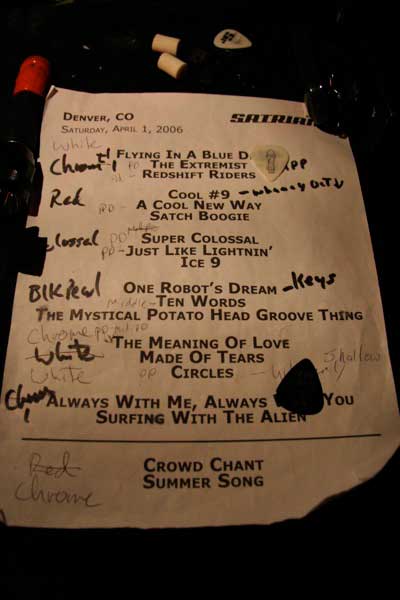 Denver, CO
SATRIANI
Saturday, April 1, 2006
White
Flying In A Blue D
Chrome 1 PD The Extremist PP
Redshift Riders
Red Cool #9 - Whammy Only
PD - A Cool New Way
Satch Boogie
Colossal PD Super Colossal
PD - Just Like Lightnin'
Ice 9
Blk Pearl One Robot's Dream - Keys
Middle - Ten Words
The Mystical Potato Head Groove Thing
Chrome PP
White The Meaning Of Love
Made Of Tears Shallow
White PP Circles
Chrome 1 Always With Me, Always You
Surfing With The Alien
Red Crowd Chant
Chrome Summer Song